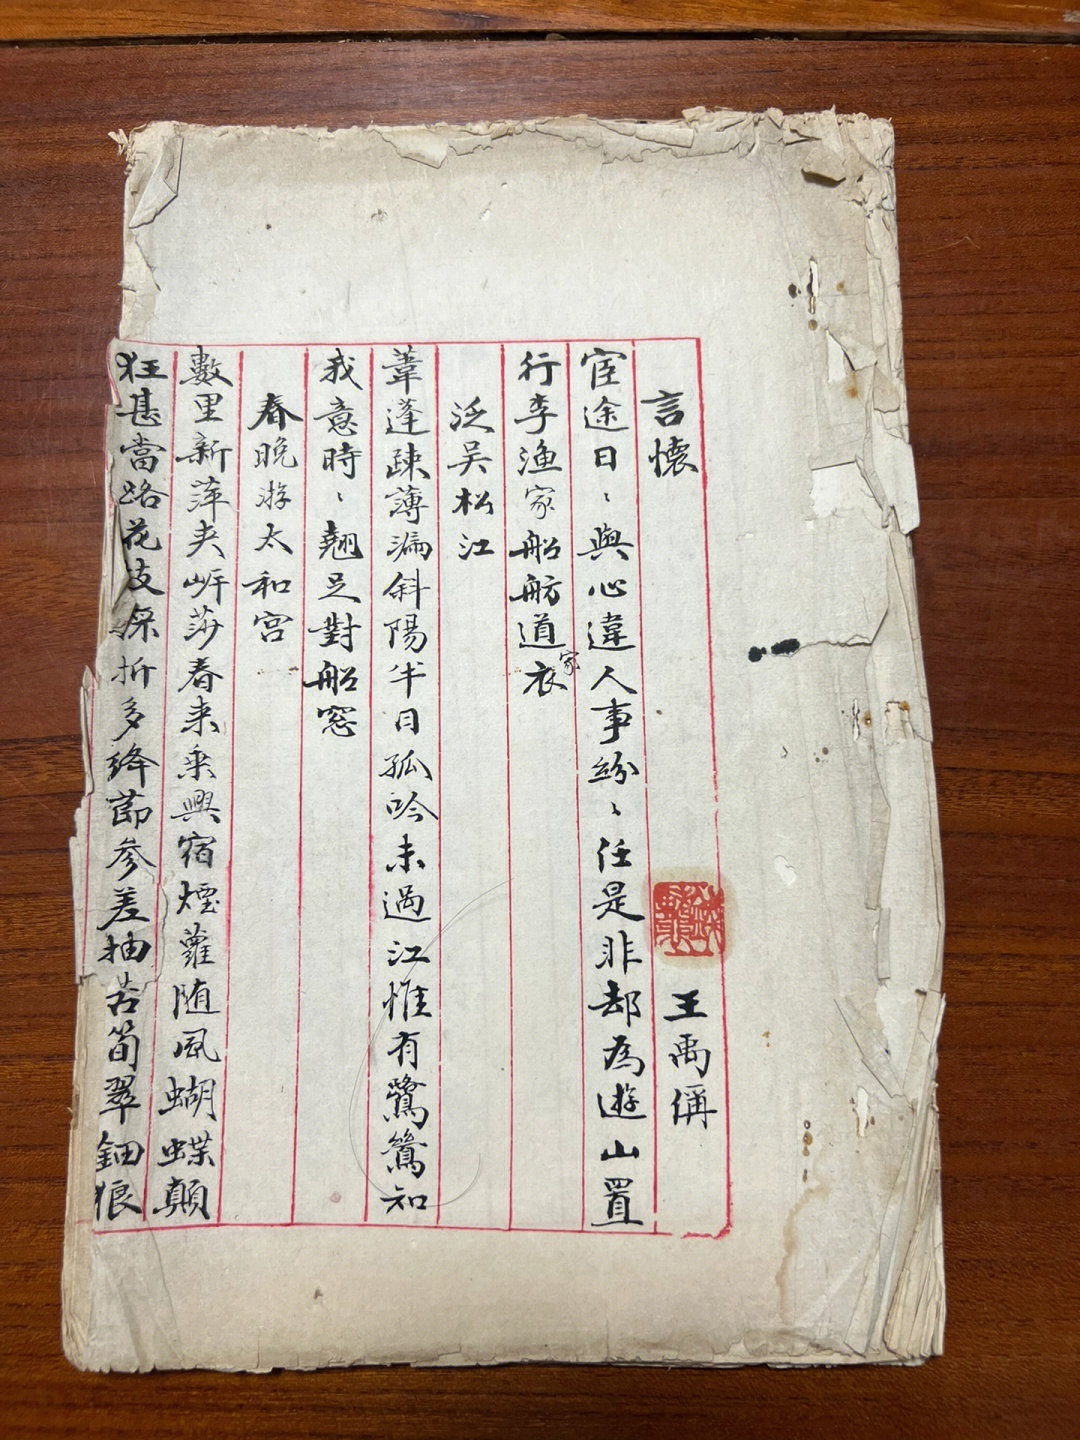 言懷
王禹偁
宦途日〻與心違人事紛〻任是非却為遊山置
行李漁家船舫道衣
家
泛吴松江
葦蓬疎薄漏斜陽半日孤吟未過江惟有鷺鷥知
我意時〻翹足對船窓
春晚游太和宫
數里新萍夾岸莎春来乘興宿煙蘿随風蝴蝶顛
狂甚當路花枝採折多絳節參差抽苦筍翠鈿狼